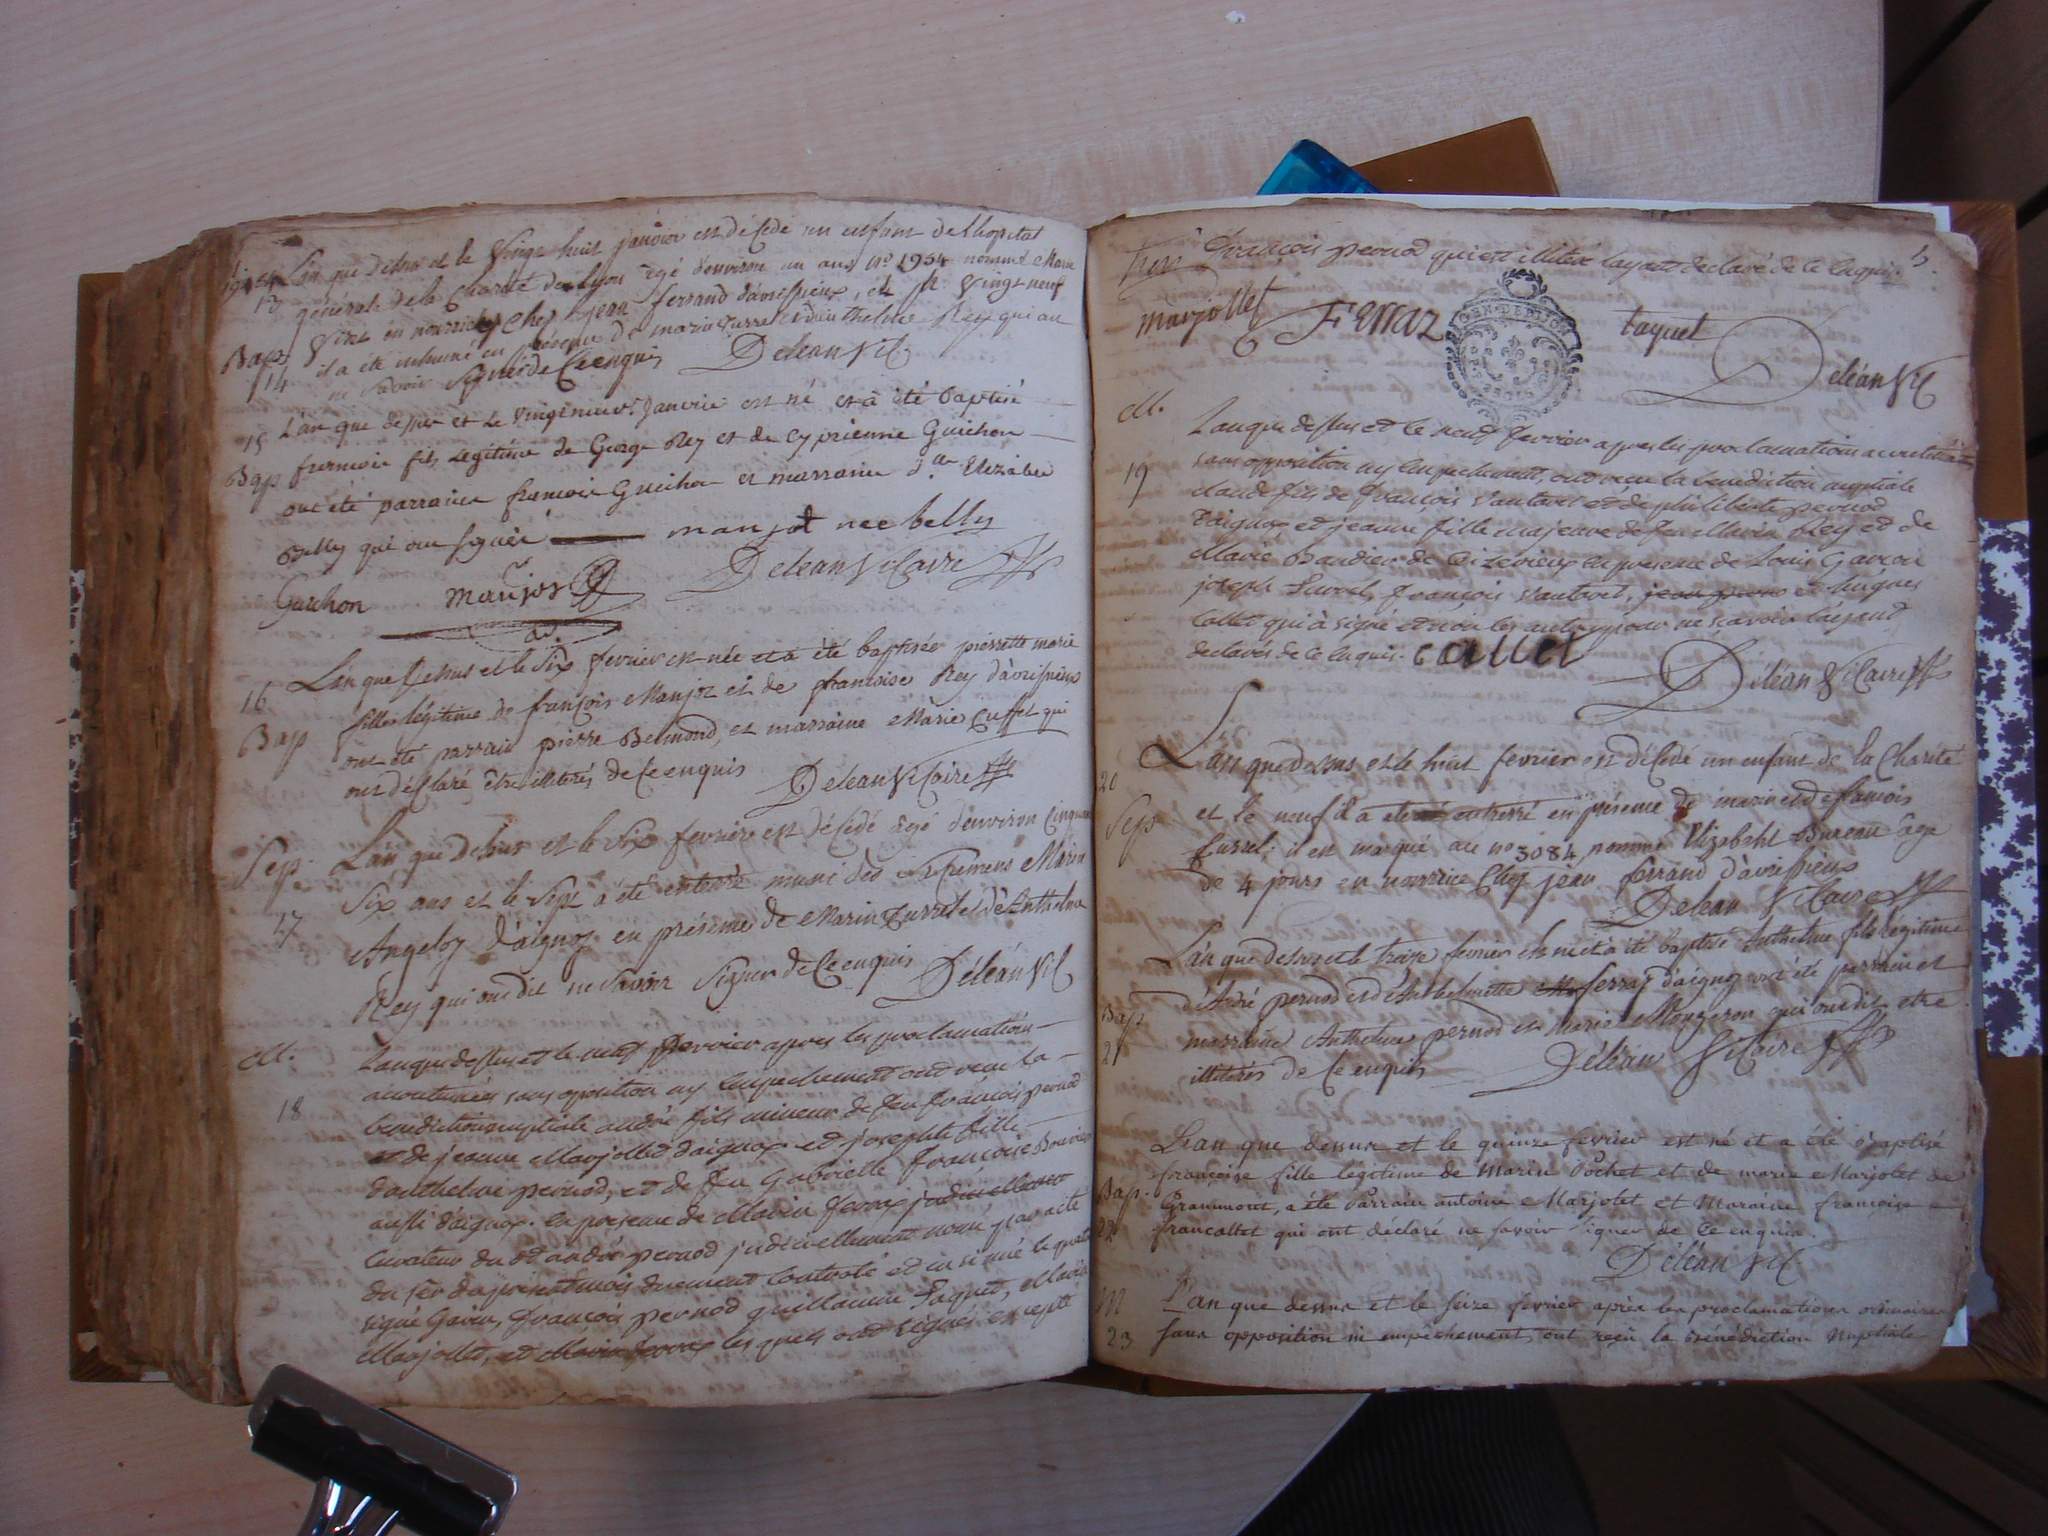 L'an que dessus et le Vingt huit janvier est décédé un enfant de l'hopital
13 générale de la Charité de Lyon âgé d'environ un ans n.o 1954 nommé Marie
en nourrice Chez jean ferrand d'avressieux, et le Vingt neuf
Bap il a été inhumé en présence de marin Turrel et d'anthelme Rey qui ont
14 ne savoir signer de Ce enquis Deléan Vic
15 L'an que dessus et le vingt neuv.e Janvier est né et à été baptisé
Bap francois fils Legitime de George Rey et de Cyprienne Guichon
ont été parrain francois Guichon et marraine d.lle Elizabee
Belly qui ont signé manjot nee belly
Guichon manjot Deléan Vicaire
16 L'an que Dessus et le Six fevrier est née et a été baptisée pierrette marie
Bap fille légitime de françois Manjoz et de françoise Rey d'avressieux
ont été parrain pierre Belmond, et marraine Marie Cuffet qui
ont déclaré être illiterés de Ce enquis Deléan Vicaire
Sep. L'an que Dessus et le Six fevrier est décédé agé d'environ Cinquante
17 Six ans et le sept a été enterré muni des Sacremens Marin
Angeloz d'aignoz en présence de Marin Turrel et d'Anthelme
Rey qui ont dit ne savoir Signer de Ce enquis Deléan Vic
M. L'an que dessus et le neuf fevrier apres les proclamations
18 acoutumées sans oposition ny empechement ont recu la
benediction nuptiale andré fils mineur de feu françois pernod
et de jeanne Marjollet d'aignoz et josephte fille
d'anthelme pernod, et de feu Gabrielle françoise Bouvier
aussi d'aignoz. en presence de Marin ferraz
Curateur du dt andré pernod judiciellement nomé par acte
du 1er du present mois duement controlé et insinué le quatre
signé Gavin, françois pernod guillaume Taquet, Marin
Marjollet, et Marin ferraz les quels ont signés excepté
françois pernod qui est illitéré layant declaré de ce enquis. 5.
marjollet Ferraz taquet
Deléan Vic
M. L'an que dessus et le neuf fevrier apres les proclamations acoutumées
19 sans opposition ny empechement, ont recu la benediction nuptiale
claude fils de françois vautaret et de philiberte pernod
d'aignoz et jeanne fille majeure de feu Marin Rey et de
Marie Baudier en presence de Louis Gavron
joseph Turrel, françois vautaret, et hugues
Callet qui à signé et non les autres pour ne savoir l'ayant
declarés de ce enquis. callet
Deléan Vicaire
20 L'an que dessus et le huit fevrier est décédé un enfant de la Charité
Sep et le neuf il a eté enterré en présence de marin et de francois
Turrel; il est marqué au no 3084, nommé Elizabeht Bureau âge
de 4 jours en nourrice Chez jean ferrand d'avressieux
Deléan Vicaire
L'an que dessus et le treize fevrier est né et a été baptisé Anthelme fils légitime
Bap d'André pernod et d'Anthelmette ferraz d'aignoz ont été parrain et
21 marraine Anthelme pernod et Marie Mongeron qui ont dit etre
illiterés de Ce enquis Deléan Vicaire
L'an que dessus et le quinze fevrier est né et a été baptisé
françoise fille légitime de Marin Pochet et de marie Marjolet de
Bap. Grammont, a été Parrain antoine Marjolet et Maraine françoise
22 francallet qui ont déclaré ne savoir signer de ce enquis.
Deléan Vic
M L'an que dessus et le seize fevrier après les proclamations ordinaires
23 sans opposition ni empêchement, ont reçu la bénédiction nuptiale